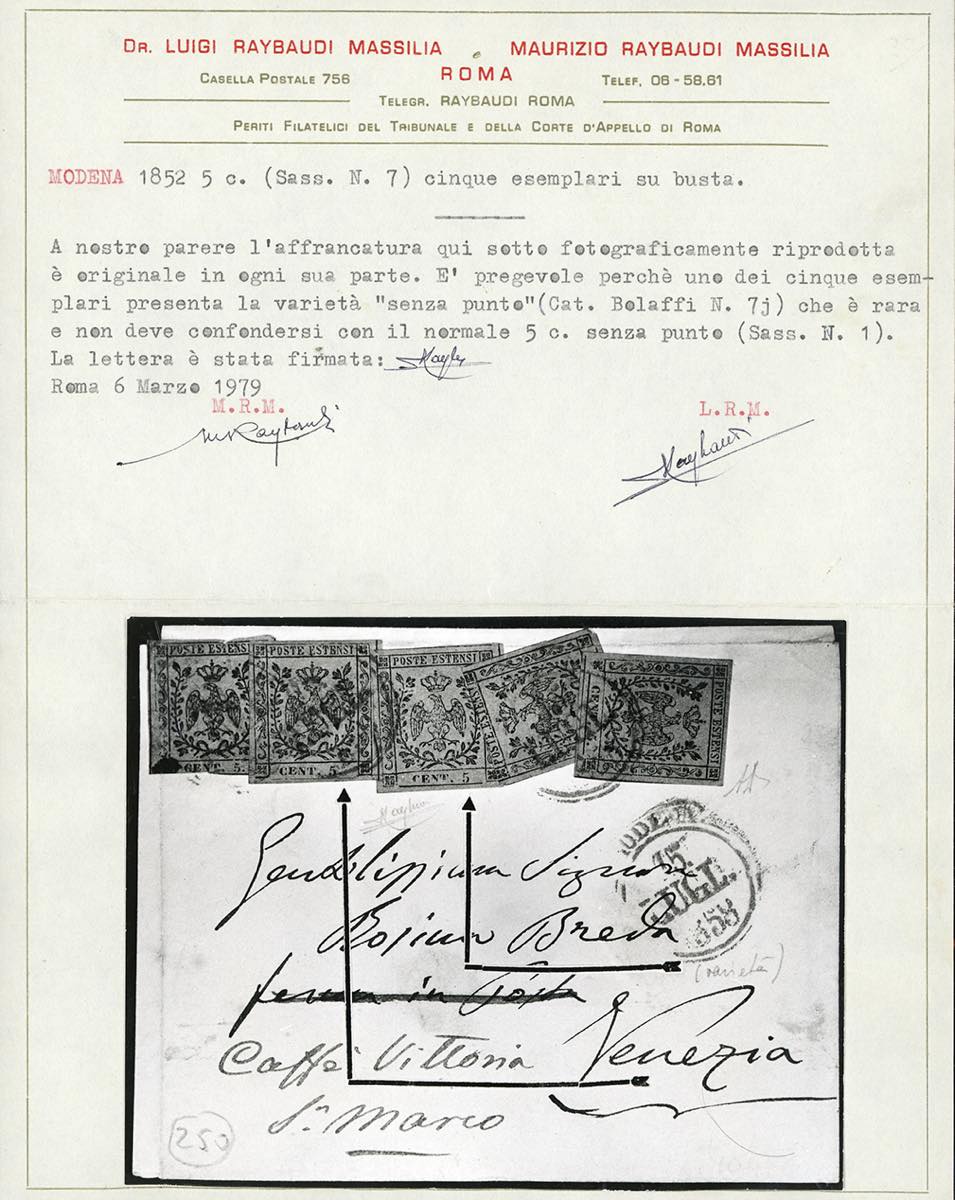 DR. LUIGI RAYBAUDI MASSILIA e MAURIZIO RAYBAUDI MASSILIA
ROMA
CASELLA POSTALE 756 TELEF. 06-58.61
TELEGR. RAYBAUDI ROMA
PERITI FILATELICI DEL TRIBUNALE E DELLA CORTE D'APPELLO DI ROMA
MODENA 1852 5 c. (Sass. N. 7) cinque esemplari su busta.
A nostro parere l'affrancatura qui sotto fotograficamente riprodotta
è originale in ogni sua parte. E' pregevole perchè uno dei cinque esem-
plari presenta la varietà "senza punto"(Cat. Bolaffi N. 7j) che è rara
e non deve confondersi con il normale 5 c. senza punto (Sass. N. 1).
La lettera è stata firmata:
Roma 6 Marzo 1979
M.R.M. L.R.M.
POSTE ESTENSI POSTE ESTENSI POSTE ESTENSI POSTE ESTENSI POSTE ESTENSI
CENT. 5. CENT. 5. CENT. 5 CENT.
15
LUGL.
858
Breda
(varietà)
Caffè Vittoria Venezia
Sn Marco
250